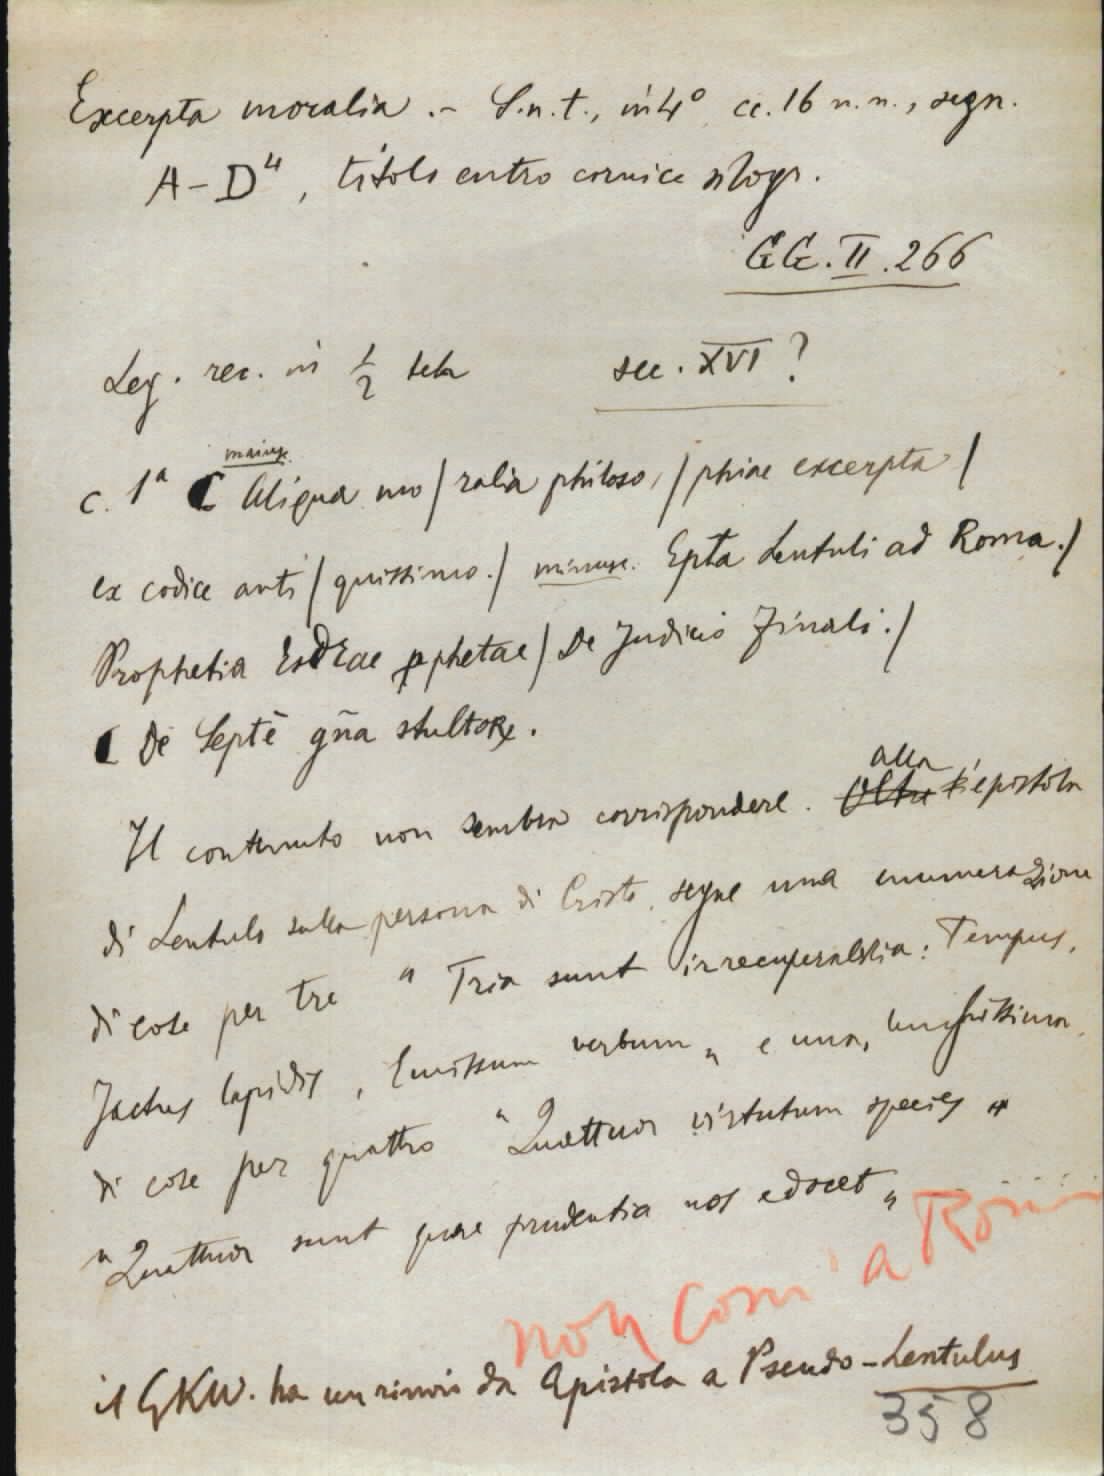 Excerpta moralia .- S.n.t., in 4° cc. 16 n.n., segn.
A-D⁴, titolo entro cornice silogr.
GG. II. 266
Leg. rec. in 1/2 tela sec. XVI?
maiusc.
c. 1ª C Aliqua mo/ralia philoso,/phiae excerpta/
ex codice anti/quissimo./ minusc. Epta Lentuli ad Roma./
Prophetia EsdEae pphetae/De Judicio Finali./
C De Septē gña stultoꝝ.
alla
Il contenuto non sembra corrispondere. Oltre l'epistola
di Lentulo sulla persona di Cristo, segue una enumerazione
di cose per tre " Tria sunt irrecuperabilia: Tempus,
Jactus lapidis, Emissum verbum " e una, lunghissima,
di cose per quattro " Quattuor virtutum species "
" Quattuor sunt quae prudentia nos edocet "
non a
il GKW. ha un rinvio da Epistola a Pseudo-Lentulus
358